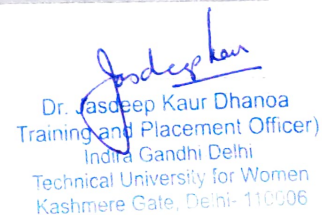 Jasdeep Kaur
Dr. Jasdeep Kaur Dhanoa
Training and Placement Officer)
Indira Gandhi Delhi
Technical University for Women
Kashmere Gate, Delhi- 110006